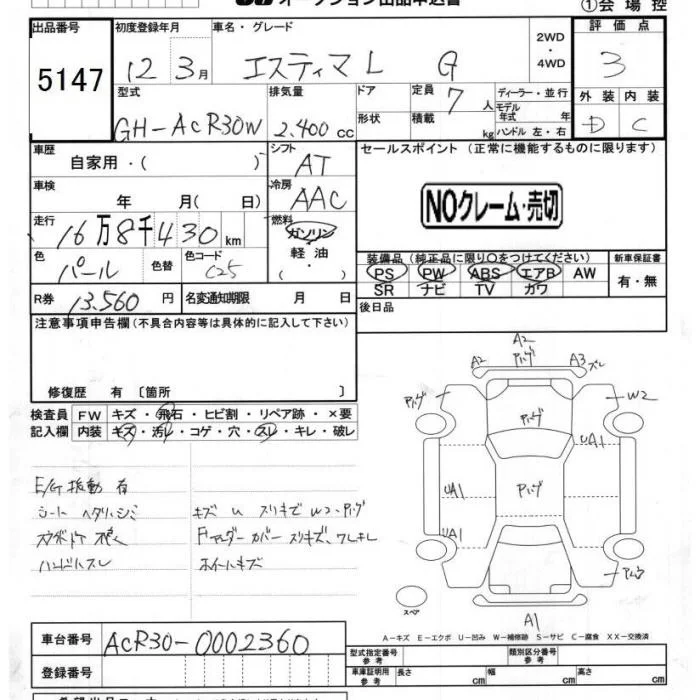 ①会場控
出品番号
初度登録年月
車名・グレード
評価点
5147
12年3月
エスティマL G
2WD・4WD
3
型式
排気量
ドア
定員
7人
ディーラー・並行
外装
内装
GH-ACR30W
2.400cc
形状
積載
kg
モデル年式 年
ハンドル 左・右
D
C
車歴
自家用・( )
シフト
AT
セールスポイント (正常に機能するものに限ります)
車検
年 月( 日)
冷房
AAC
NOクレーム・売切
走行
16万8千430km
燃料
ガソリン
軽油
・( )
色
パール
色替
色コード
C25
装備品 (純正品に限り○をつけてください)
新車保証書
PS PW ABS エアB AW
SR ナビ TV カワ
有・無
R券
13.560円
名変通知期限 月 日
後日品
注意事項申告欄(不具合内容等は具体的に記入して下さい)
修復歴 有 〔箇所 〕
検査員
記入欄
FW キズ・飛石・ヒビ割・リペア跡・×要
内装 キズ・汚レ・コゲ・穴・スレ・キレ・破レ
E/G振動 有
シート ヘタリ、シミ
ハンドルスレ
ホイールキズ
A2
A2
A3 スレ
W2
UA1
UA1
UA1
スペア
A1
A－キズ E－エクボ U－凹み W－補修跡 S－サビ C－腐食 XX－交換済
車台番号
ACR30-0002360
登録番号
型式指定番号 参考
類別区分番号 参考
車庫証明用 参考
長さ cm
幅 cm
高さ cm